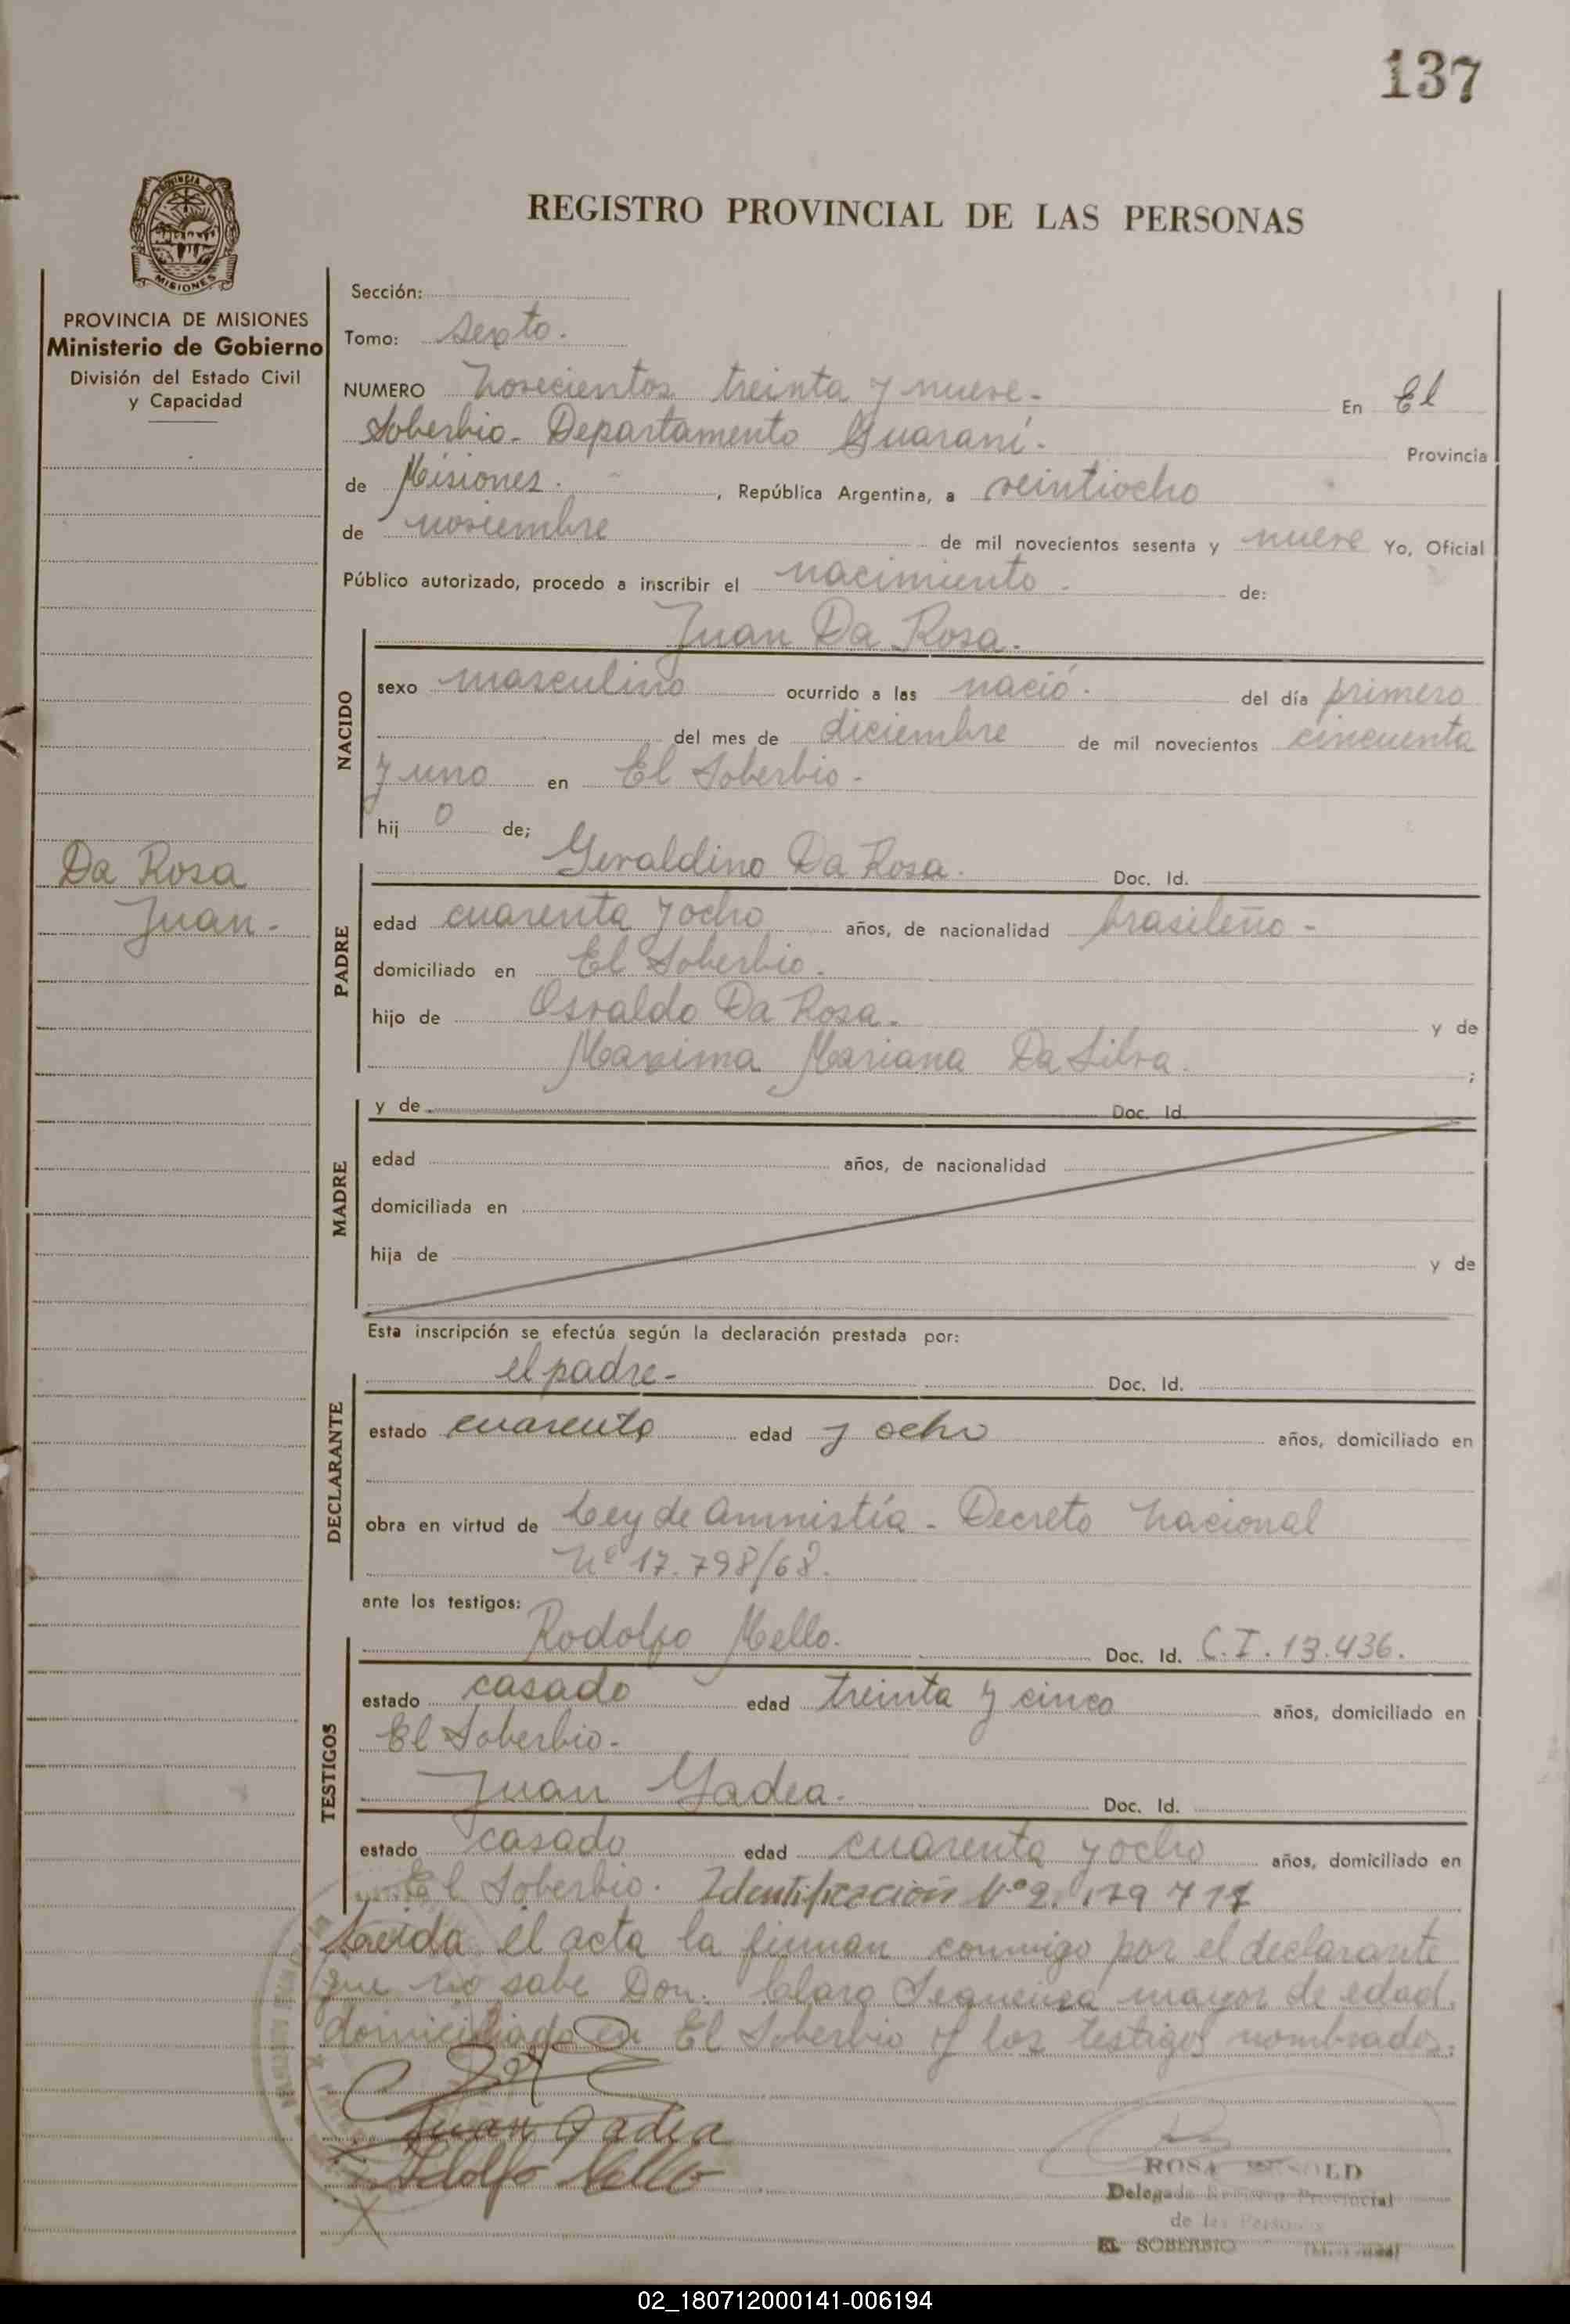 137
PROVINCIA DE
MISIONES
REGISTRO PROVINCIAL DE LAS PERSONAS
PROVINCIA DE MISIONES
Ministerio de Gobierno
División del Estado Civil
y Capacidad
Da Rosa
Juan.
Sección:
Tomo: Sexto.
NUMERO Novecientos treinta y nueve. En El
Soberbio. Departamento Guaraní. Provincia
de Misiones. , República Argentina, a veintiocho
de noviembre de mil novecientos sesenta y nueve Yo, Oficial
Público autorizado, procedo a inscribir el nacimiento. de:
Juan Da Rosa.
NACIDO
sexo masculino ocurrido a las nació. del día primero
del mes de diciembre de mil novecientos cincuenta
y uno en El Soberbio.
hij o de;
PADRE
Geraldino Da Rosa. Doc. Id.
edad cuarenta y ocho años, de nacionalidad brasileño.
domiciliado en El Soberbio.
hijo de Osvaldo Da Rosa. y de
Maxima Mariana Da Silva. ;
MADRE
y de Doc. Id.
edad años, de nacionalidad
domiciliada en
hija de y de
Esta inscripción se efectúa según la declaración prestada por:
DECLARANTE
el padre. Doc. Id.
estado cuarenta edad y ocho años, domiciliado en
obra en virtud de Ley de Amnistía - Decreto Nacional
Nº 17.798/68.
ante los testigos:
TESTIGOS
Rodolfo Mello. Doc. Id. C.I. 13.436.
estado casado edad treinta y cinco años, domiciliado en
El Soberbio.
Juan Gadea. Doc. Id.
estado casado edad cuarenta y ocho años, domiciliado en
El Soberbio. Identificación Nº 2.179717
Leída el acta la firman conmigo por el declarante
que no sabe Don. Claro Sequeira mayor de edad.
domiciliado en El Soberbio y los testigos nombrados.
Juan Gadea
Rodolfo Mello
ROSA
Delegada Registro Provincial
de las Personas
EL SOBERBIO
02_180712000141-006194